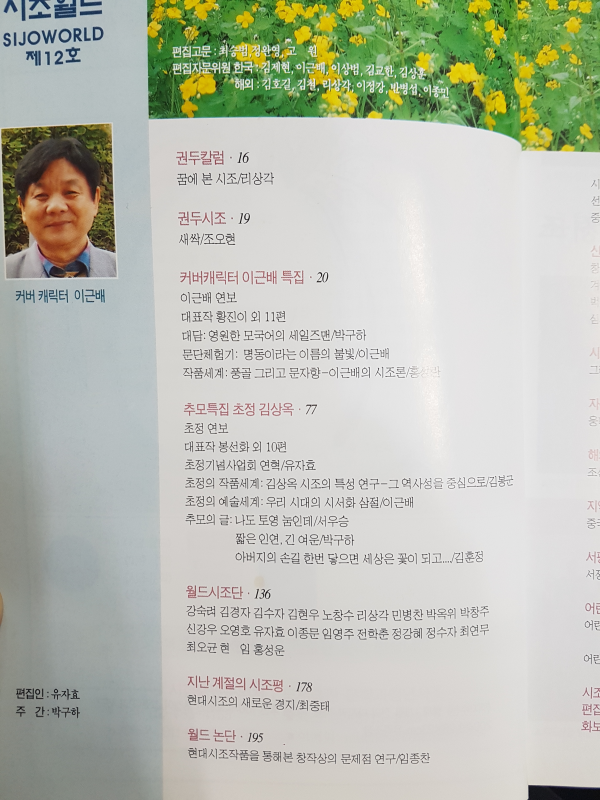 시조월드
SIJOWORLD
제12호
편집고문 : 최승범, 정완영, 고 원
편집자문위원 한국 : 김제현, 이근배, 이상범, 김교한, 김상훈
해외 : 김호길, 김철, 리상각, 이정강, 반병섭, 이종민
커버 캐릭터 이근배
편집인 : 유자효
주 간 : 박구하
권두칼럼 · 16
꿈에 본 시조/리상각
권두시조 · 19
새싹/조오현
커버캐릭터 이근배 특집 · 20
이근배 연보
대표작 황진이 외 11편
대담: 영원한 모국어의 세일즈맨/박구하
문단체험기: 명동이라는 이름의 불빛/이근배
작품세계: 풍골 그리고 문자향-이근배의 시조론/홍성란
추모특집 초정 김상옥 · 77
초정 연보
대표작 봉선화 외 10편
초정기념사업회 연혁/유자효
초정의 작품세계: 김상옥 시조의 특성 연구-그 역사성을 중심으로/김봉군
초정의 예술세계: 우리 시대의 시서화 삼절/이근배
추모의 글: 나도 토영 눔인데/서우승
짧은 인연, 긴 여운/박구하
아버지의 손길 한번 닿으면 세상은 꽃이 되고..../김훈정
월드시조단 · 136
강숙려 김경자 김수자 김현우 노창수 리상각 민병찬 박옥위 박창주
신강우 오영호 유자효 이종문 임영주 전학춘 정강혜 정수자 최연무
최오균 현 임 홍성운
지난 계절의 시조평 · 178
현대시조의 새로운 경지/최중태
월드 논단 · 195
현대시조작품을 통해본 창작상의 문제점 연구/임종찬